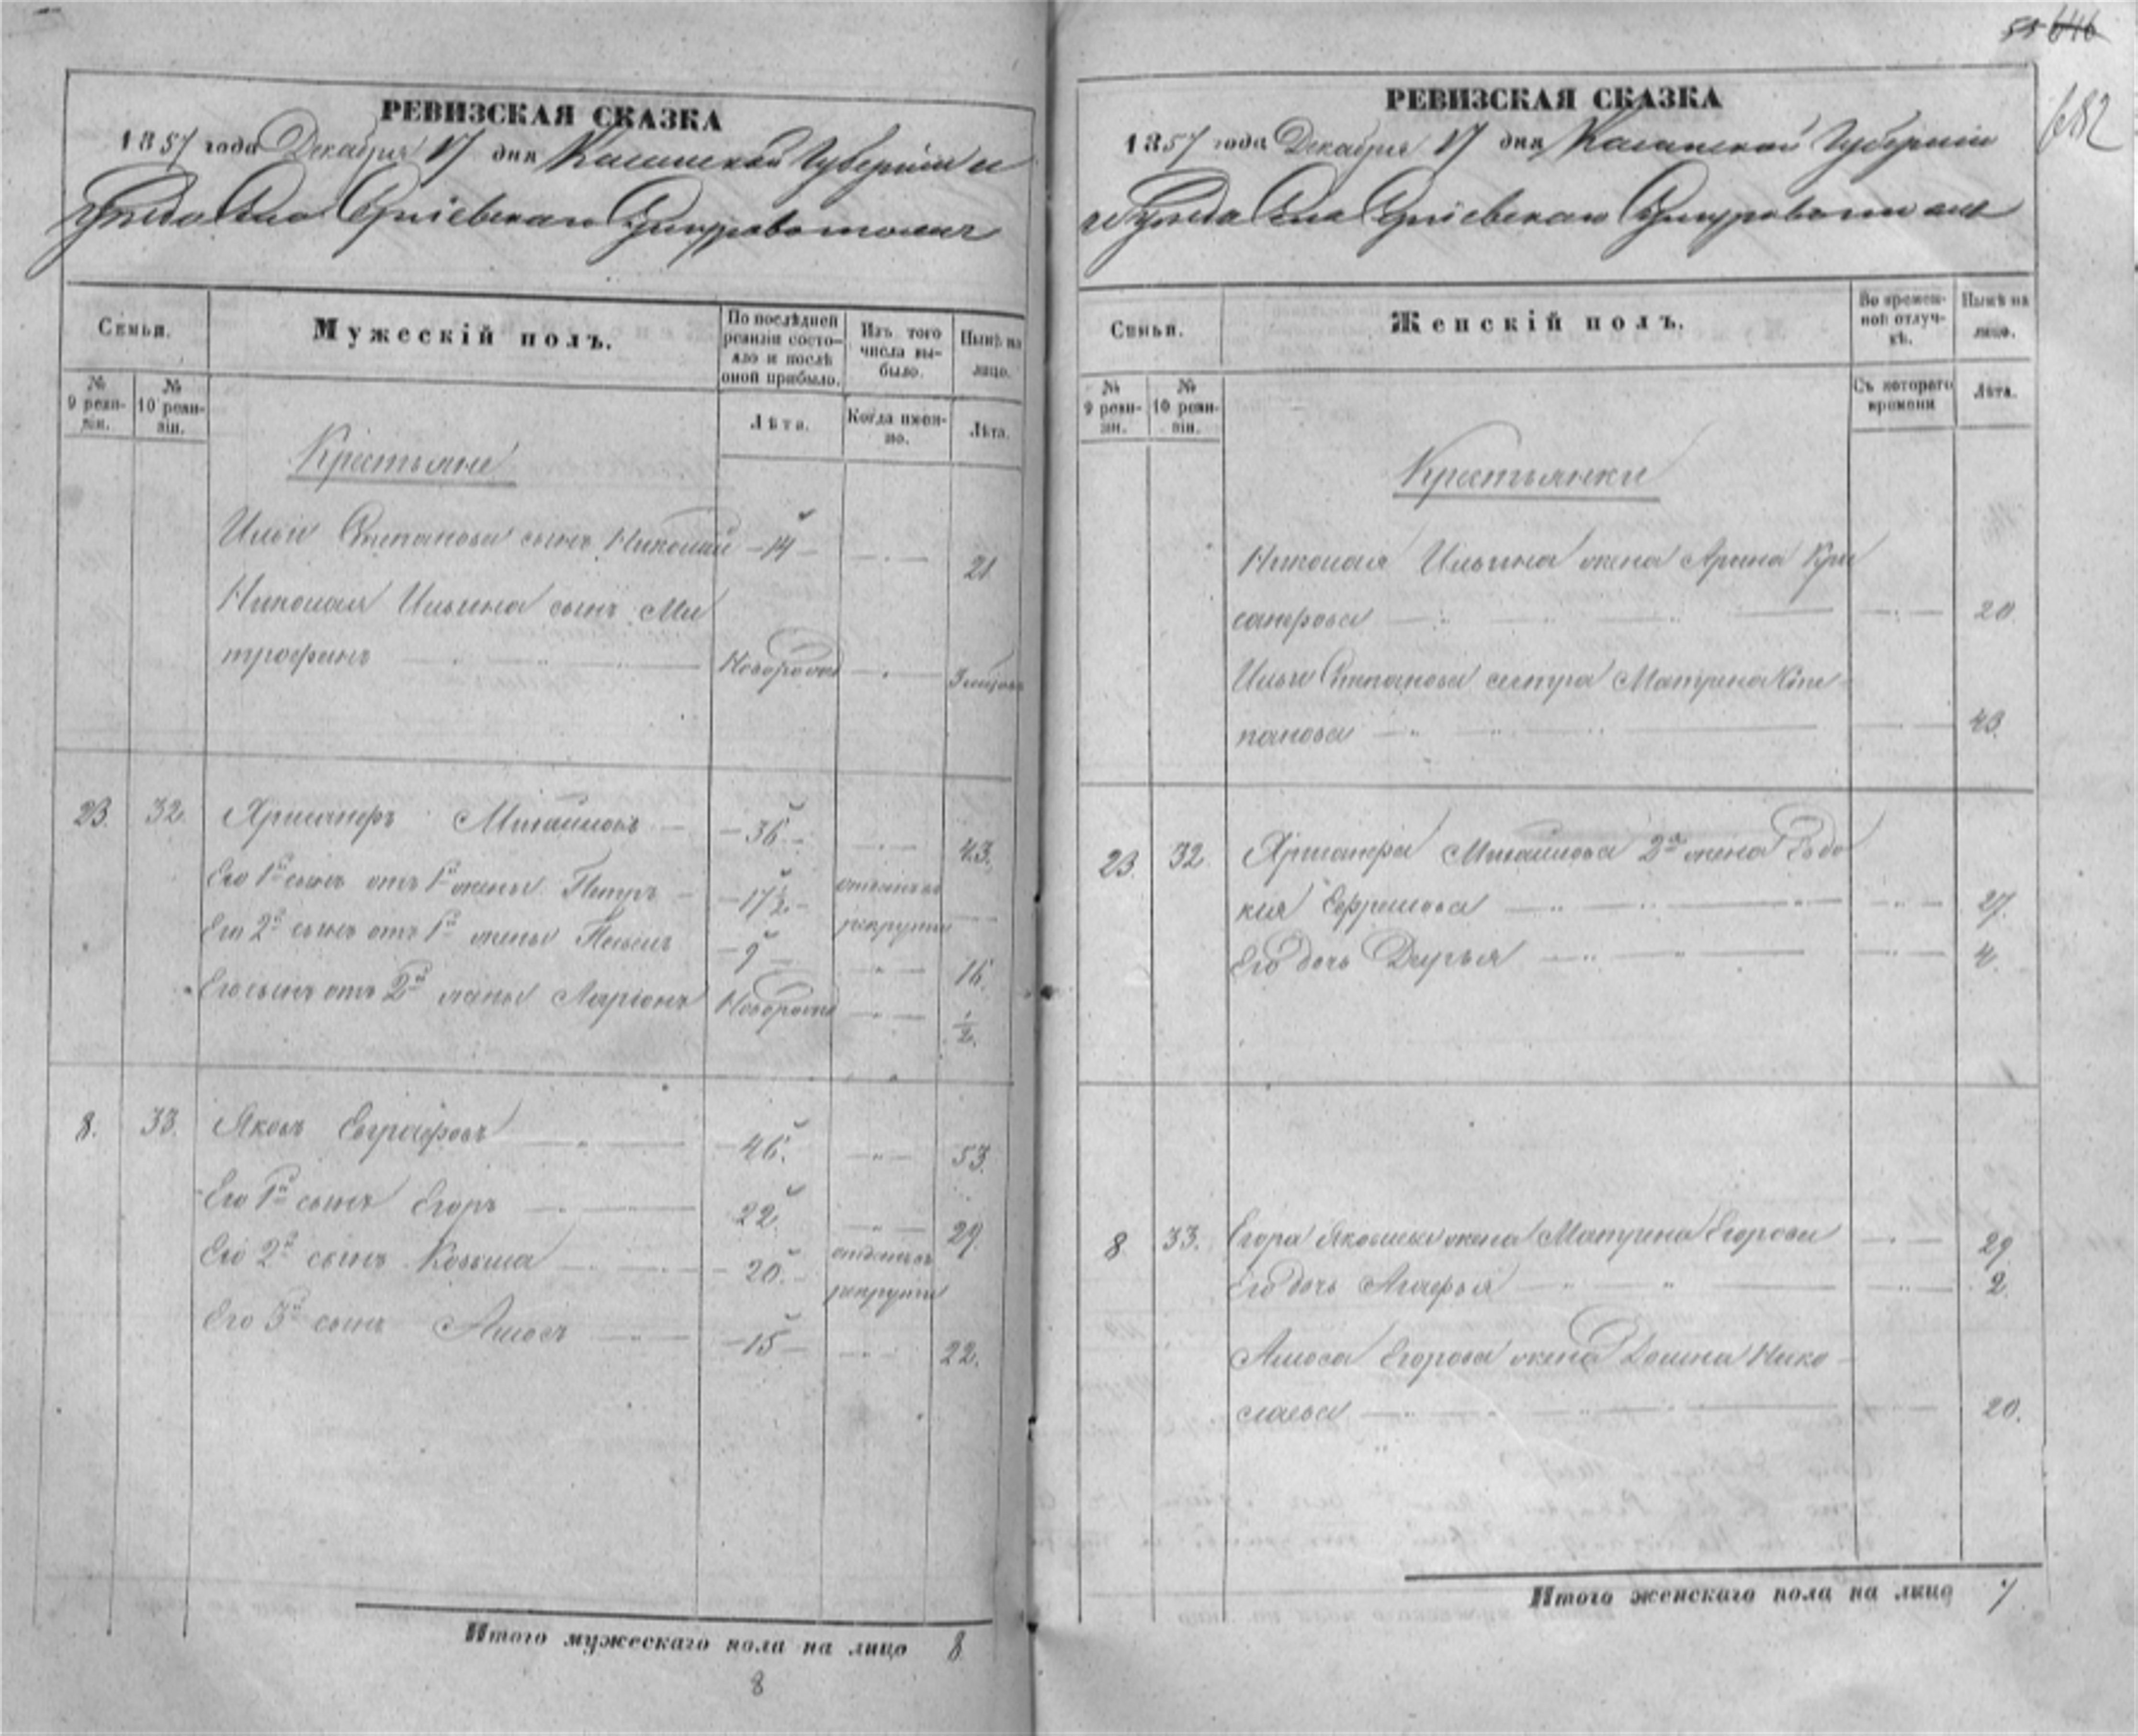 55 646
682
РЕВИЗСКАЯ СКАЗКА
1857 года Декабря 17 дня Казанской Губерніи и
Уѣзда Села Сергіевскаго
Семьи.
Мужескій полъ.
По послѣдней ревизіи состояло и послѣ оной прибыло.
Изъ того числа выбыло.
Нынѣ на лицо.
№ 9 ревизіи.
№ 10 ревизіи.
Лѣта.
Когда именно.
Лѣта.
Крестьяне
Ильи Степанова сынъ Николай - 14 - 21
Николая Ильина сынъ Ми
трофанъ Новорожд
23. 32. Хрисанфъ Михайловъ - 36. - 43.
Его 1й сынъ отъ 1й жены Петръ - 17½ - отданъ въ рекруты
Его 2й сынъ отъ 1й жены - 9 - 16.
Его сынъ отъ 2й жены Ларіонъ Новорожд ½.
8. 33. Яковъ Евграфовъ - 46. 53.
Его 1й сынъ Егоръ 22. 29.
Его 2й сынъ Козьма - 20. - отданъ въ рекруты
Его 3й сынъ Амосъ - 15 - 22.
Итого мужескаго пола на лицо 8
8
РЕВИЗСКАЯ СКАЗКА
1857 года Декабря 17 дня Казанской Губерніи
и Уѣзда Села Сергіевскаго
Семьи.
Женскій полъ.
Во временной отлучкѣ.
Нынѣ на лицо.
№ 9 ревизіи.
№ 10 ревизіи.
Съ котораго времени
Лѣта.
Крестьянки
Николая Ильина жена Арина Хри
санфова 20
Ильи Степанова сестра Матрена Сте-
панова 43.
23. 32. Хрисанфа Михайлова 2я жена Евдо
кия Ефремова 27.
Его дочь Дарья 4.
8 33. Егора Яковлева жена Матрена Егорова 29
Его дочь Агафья 2.
Амоса Егорова жена Домна Нико-
лаева 20.
Итого женскаго пола на лицо 7.